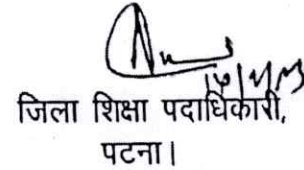 जिला शिक्षा पदाधिकारी,
पटना।